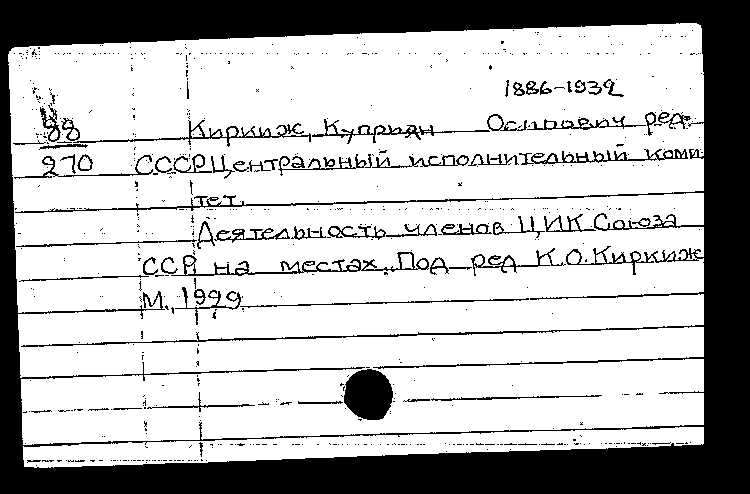 1886-1932
88 Киркиж, Куприян Осипович ред.
270 СССР Центральный исполнительный коми
тет.
Деятельность членов ЦИК Союза
ССР на местах. Под ред К.О.Киркиж
М., 1929.